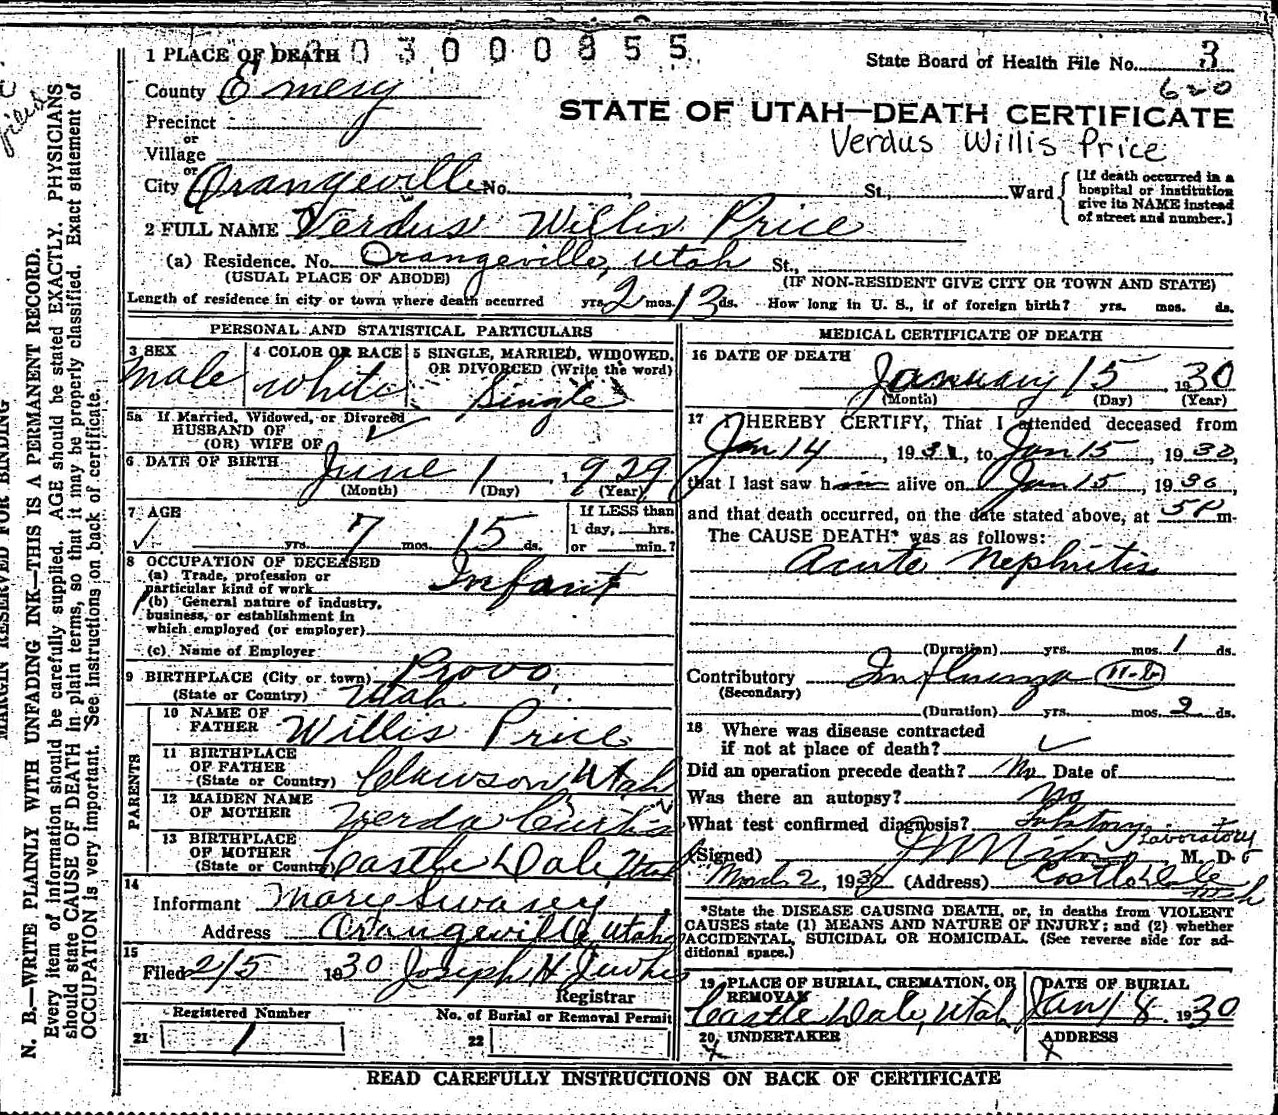 1 PLACE OF DEATH 3 0 0 0 8 5 5
State Board of Health File No. 3
620
County Emery
STATE OF UTAH—DEATH CERTIFICATE
Precinct
or
Verdus Willis Price
Village
or
City Orangeville No. St., Ward
[If death occurred in a
hospital or institution
give its NAME instead
of street and number.]
2 FULL NAME Verdus Willis Price
(a) Residence. No. Orangeville, Utah St.,
(USUAL PLACE OF ABODE) (IF NON-RESIDENT GIVE CITY OR TOWN AND STATE)
Length of residence in city or town where death occurred yrs. 2 mos. 13 ds. How long in U. S., if of foreign birth? yrs. mos. ds.
PERSONAL AND STATISTICAL PARTICULARS
3 SEX
male
4 COLOR OR RACE
white
5 SINGLE, MARRIED, WIDOWED,
OR DIVORCED (Write the word)
Single
5a If Married, Widowed, or Divorced
HUSBAND OF
(OR) WIFE OF
6 DATE OF BIRTH June 1, 1929
(Month) (Day) (Year)
7 AGE
yrs. 7 mos. 15 ds.
If LESS than
1 day, hrs.
or min.?
8 OCCUPATION OF DECEASED
(a) Trade, profession or
particular kind of work Infant
(b) General nature of industry,
business, or establishment in
which employed (or employer)
(c) Name of Employer
9 BIRTHPLACE (City or town) Provo,
(State or Country) Utah
PARENTS
10 NAME OF
FATHER Willis Price
11 BIRTHPLACE
OF FATHER
(State or Country) Clawson, Utah
12 MAIDEN NAME
OF MOTHER Verda Curtis
13 BIRTHPLACE
OF MOTHER
(State or Country) Castle Dale Utah
14
Informant Mary Swasey
Address Orangeville, Utah
15
Filed 2/5 1930 Joseph H
Registrar
Registered Number
21 1
No. of Burial or Removal Permit
22
MEDICAL CERTIFICATE OF DEATH
16 DATE OF DEATH
January 15, 1930
(Month) (Day) (Year)
17 I HEREBY CERTIFY, That I attended deceased from
Jan 14, 193, to Jan 15, 1930,
that I last saw him alive on Jan 15, 1930,
and that death occurred, on the date stated above, at 5P m.
The CAUSE DEATH* was as follows:
Acute Nephritis
(Duration) yrs. mos. 1 ds.
Contributory Influenza 11-b
(Secondary)
(Duration) yrs. mos. 2 ds.
18 Where was disease contracted
if not at place of death?
Did an operation precede death? No Date of
Was there an autopsy? No
What test confirmed diagnosis?
Laboratory
(Signed) M. D.
March 2, 1930 (Address) Castle Dale
Utah
*State the DISEASE CAUSING DEATH, or, in deaths from VIOLENT
CAUSES state (1) MEANS AND NATURE OF INJURY; and (2) whether
ACCIDENTAL, SUICIDAL OR HOMICIDAL. (See reverse side for ad-
ditional space.)
19 PLACE OF BURIAL, CREMATION, OR
REMOVAL
Castle Dale, Utah
DATE OF BURIAL
Jan 18, 1930
20 UNDERTAKER
ADDRESS
READ CAREFULLY INSTRUCTIONS ON BACK OF CERTIFICATE
MARGIN RESERVED FOR BINDING
N. B.—WRITE PLAINLY WITH UNFADING INK—THIS IS A PERMANENT RECORD.
Every item of information should be carefully supplied. AGE should be stated EXACTLY. PHYSICIANS
should state CAUSE OF DEATH in plain terms, so that it may be properly classified. Exact statement of
OCCUPATION is very important. See instructions on back of certificate.